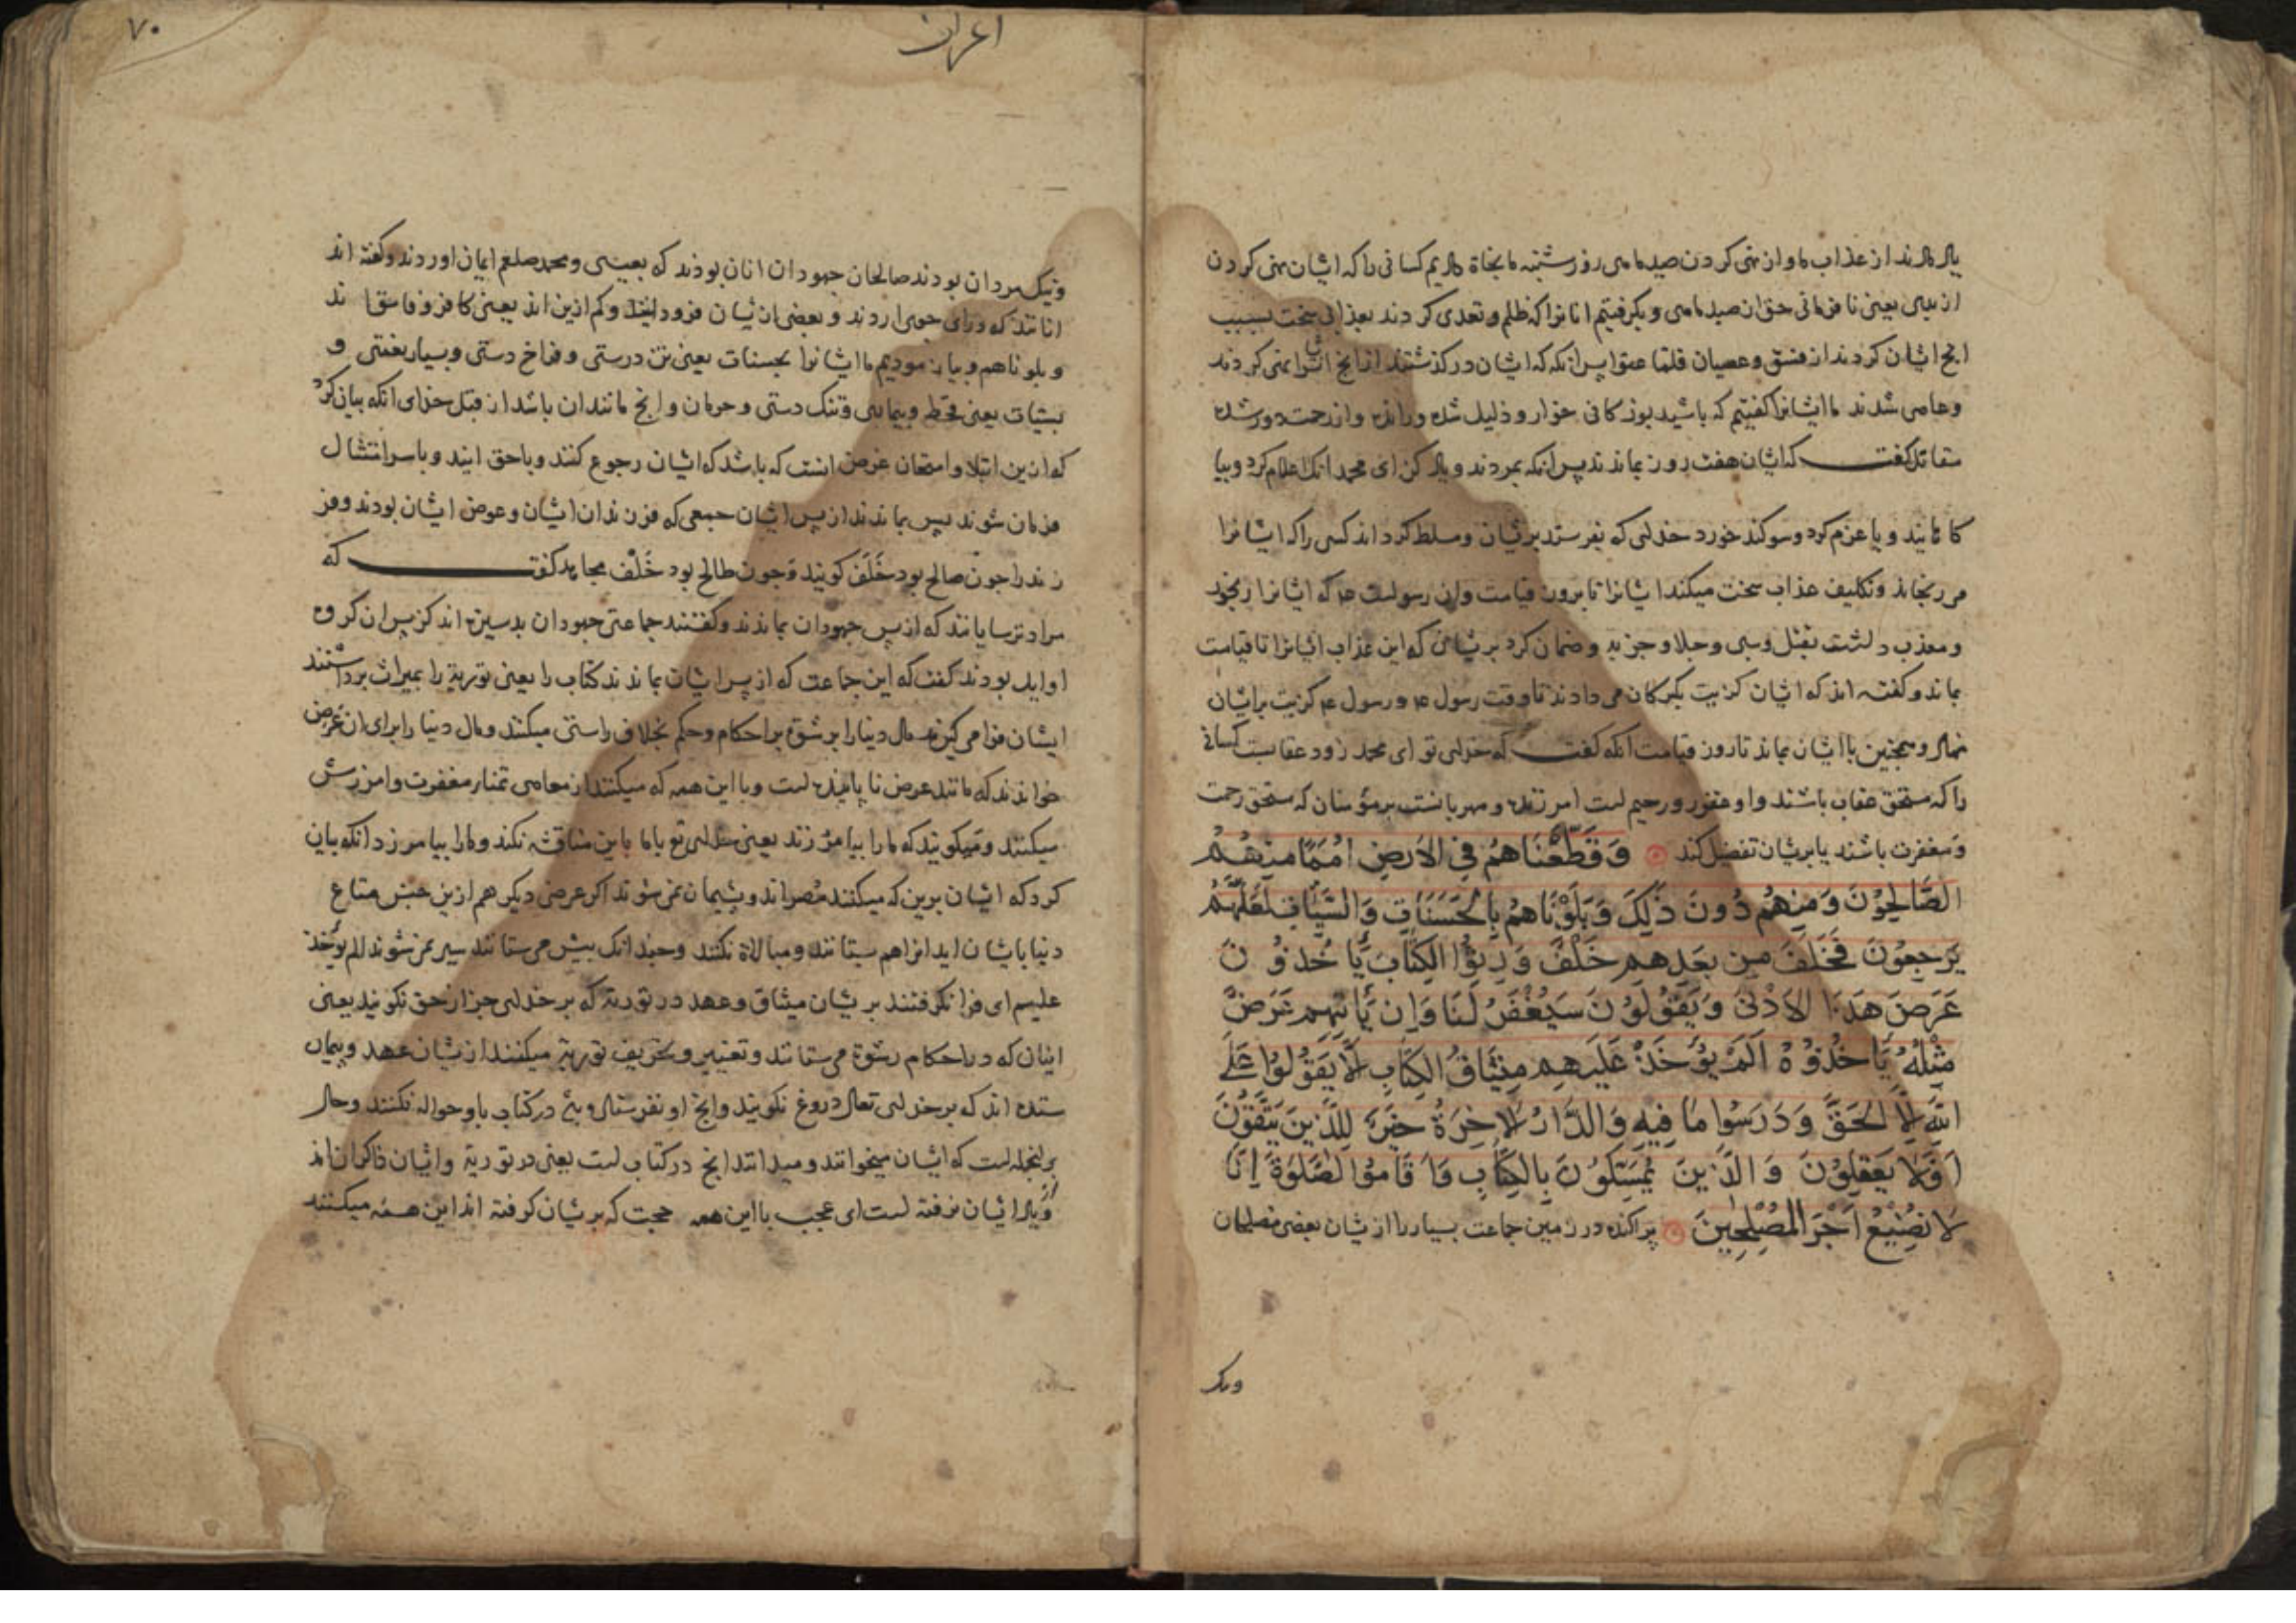 یاد دارند از عذاب ما و از نهی کردن صید ماهی روز شنبه ما نجاة دادیم کسانی را که ایشان نهی کردن
از بدی یعنی نافرمانی حق از صید ماهی و بگرفتیم انانرا که ظلم و تعدی کردند بعذابی سخت بسبب
انچ ایشان کردند از فسق و عصیان فلما عتوا پس انکه که ایشان در گذشتند از انچ انشانرا نهی کردند
و عاصی شدند ما ایشانرا گفتیم که باشید بوزکانی خوار و ذلیل شده و رانده و از رحمت دور شده
مقاتل گفت که ایشان هفت روز بماندند پس انکه بمردند و یاد کن ای محمد انک اعلام کرد و بیا
کاهانید و یا عزم کرد و سوکند خورد خدای که بفرستد بریشان و مسلط کرداند کسی را که ایشانرا
می رنجاند و تکلیف عذاب سخت میکند ایشانرا تا برون قیامت وان رسولست ع که ایشانرا رنجود
و معذب داشت بقتل و سبی و جلا و جزیه و ضمان کرد بریشان که این عذاب ایشانرا تا قیامت
بماند و گفته اند که ایشان کزیت بکبرکان می دادند تا وقت رسول ع و رسول ع کزیت برایشان
نهاد و همچنین با ایشان بماند تا روز قیامت انکه گفت که خدای تو ای محمد زود عقابست کسانی
را که مستحق عقاب باشند و او غفور و رحیم است امرزنده و مهربانست برمؤمنان که مستحق رحمت
و مغفرت باشند یا بریشان تفضل کند وَقَطَّعْنَاهُمْ فِي الْاَرْضِ اُمَمًا مِنْهُمُ
الصَّالِحُوْنَ وَمِنْهُمْ دُونَ ذَلِكَ وَبَلَوْنَاهُمْ بِالْحَسَنَاتِ وَالسَّيِّئَاتِ لَعَلَّهُمْ
يَرْجِعُوْنَ فَخَلَفَ مِنْ بَعْدِهِمْ خَلْفٌ وَرِثُوا الْكِتَابَ يَأْخُذُوْنَ
عَرَضَ هَذَا الْاَدْنَى وَيَقُوْلُوْنَ سَيُغْفَرُ لَنَا وَاِنْ يَأْتِهِمْ عَرَضٌ
مِثْلُهُ يَأْخُذُوْهُ اَلَمْ يُؤْخَذْ عَلَيْهِمْ مِيْثَاقُ الْكِتَابِ اَلَّا يَقُوْلُوْا عَلَى
اللّٰهِ اِلَّا الْحَقَّ وَدَرَسُوا مَا فِيهِ وَالدَّارُ الْاخِرَةُ خَيْرٌ لِلَّذِيْنَ يَتَّقُوْنَ
اَفَلَا يَعْقِلُوْنَ وَالَّذِيْنَ يُمَسِّكُوْنَ بِالْكِتَابِ وَاَقَامُوا الصَّلٰوةَ اِنَّا
لَا نُضِيْعُ اَجْرَ الْمُصْلِحِيْنَ پراکنده در زمین جماعت بسیار را از یشان بعضی مصلحان
ونیک
۷۰
اعراف
ونیک مردان بودند صالحان جهودان انان بوذند که بعیسی و محمد صلعم ایمان اوردند و گفته اند
انانند که ورای جوی اردند و بعضی از یشان فرود ایند و کم ازین اند یعنی کافر و فاسق اند
و بلوناهم و بیازمودیم ما ایشانرا بحسنات یعنی تن درستی و فراخ دستی و بسیار نعمتی و
بسیئات یعنی قحط و بیماریی و تنک دستی و حرمان و انچ مانند ان باشد از قبل خذای انکه بیان کرد
که ازین ابتلا و امتحان غرض انست که باشد که ایشان رجوع کنند و باحق ایند و باسر امتثال
فرمان شوند پس بماندند از پس ایشان جمعی که فرزندان ایشان و عوض ایشان بودند و فر
زند را چون صالح بود خَلَف کویند و چون طالح بود خَلْف مجاهد گفت که
مراد ترسایانند که از پس جهودان بماندند و گفتند جماعتی جهودان بدسیرت اند کز پس ان کروه
اوایل بودند گفت که این جماعت که از پس ایشان بماندند کتاب را یعنی توریة را بمیراث برداشتند
ایشان فرا می کیرند مال دینا را برشوة براحکام و حکم بخلاف راستی میکنند و مال دینا را برای ان عرض
خواندند که مانند عرض ناپاینده است و با این همه که میکنند از معاصی تمنای مغفرت و امزرش
میکنند و میکویند که ما را بیامرزند یعنی خدای تع باما باین مناقشه نکند و ما را بیامرزد انکه بیان
کرد که ایشان برین که میکنند مصراند و پشیمان نمی شوند اکر عرض دیکر هم ازین جنس متاع
دینا بایشان اید انرا هم بستانند و مبالاة نکنند و چندانک بیش می ستانند سیر نمی شوند الم یؤخذ
علیهم ای فرا نکرفتند بریشان میثاق و عهد در توریة که بر خدای جز از حق نکویند یعنی
اینان که در احکام رشوة می ستانند و تغییر و تحریف توریة میکنند از یشان عهد و پیمان
ستده اند که بر خدای تعالی دروغ نکویند و انچ او نفرستاد و بئ در کتاب باو حواله نکنند و حال
برانجمله است که ایشان میخوانند و میدانند انچ در کتاب است یعنی در توریة و ایشان ذاکران اند
و یاد ایشان نرفته است ای عجب با این همه حجت که بریشان کرفته اند این همه میکنند